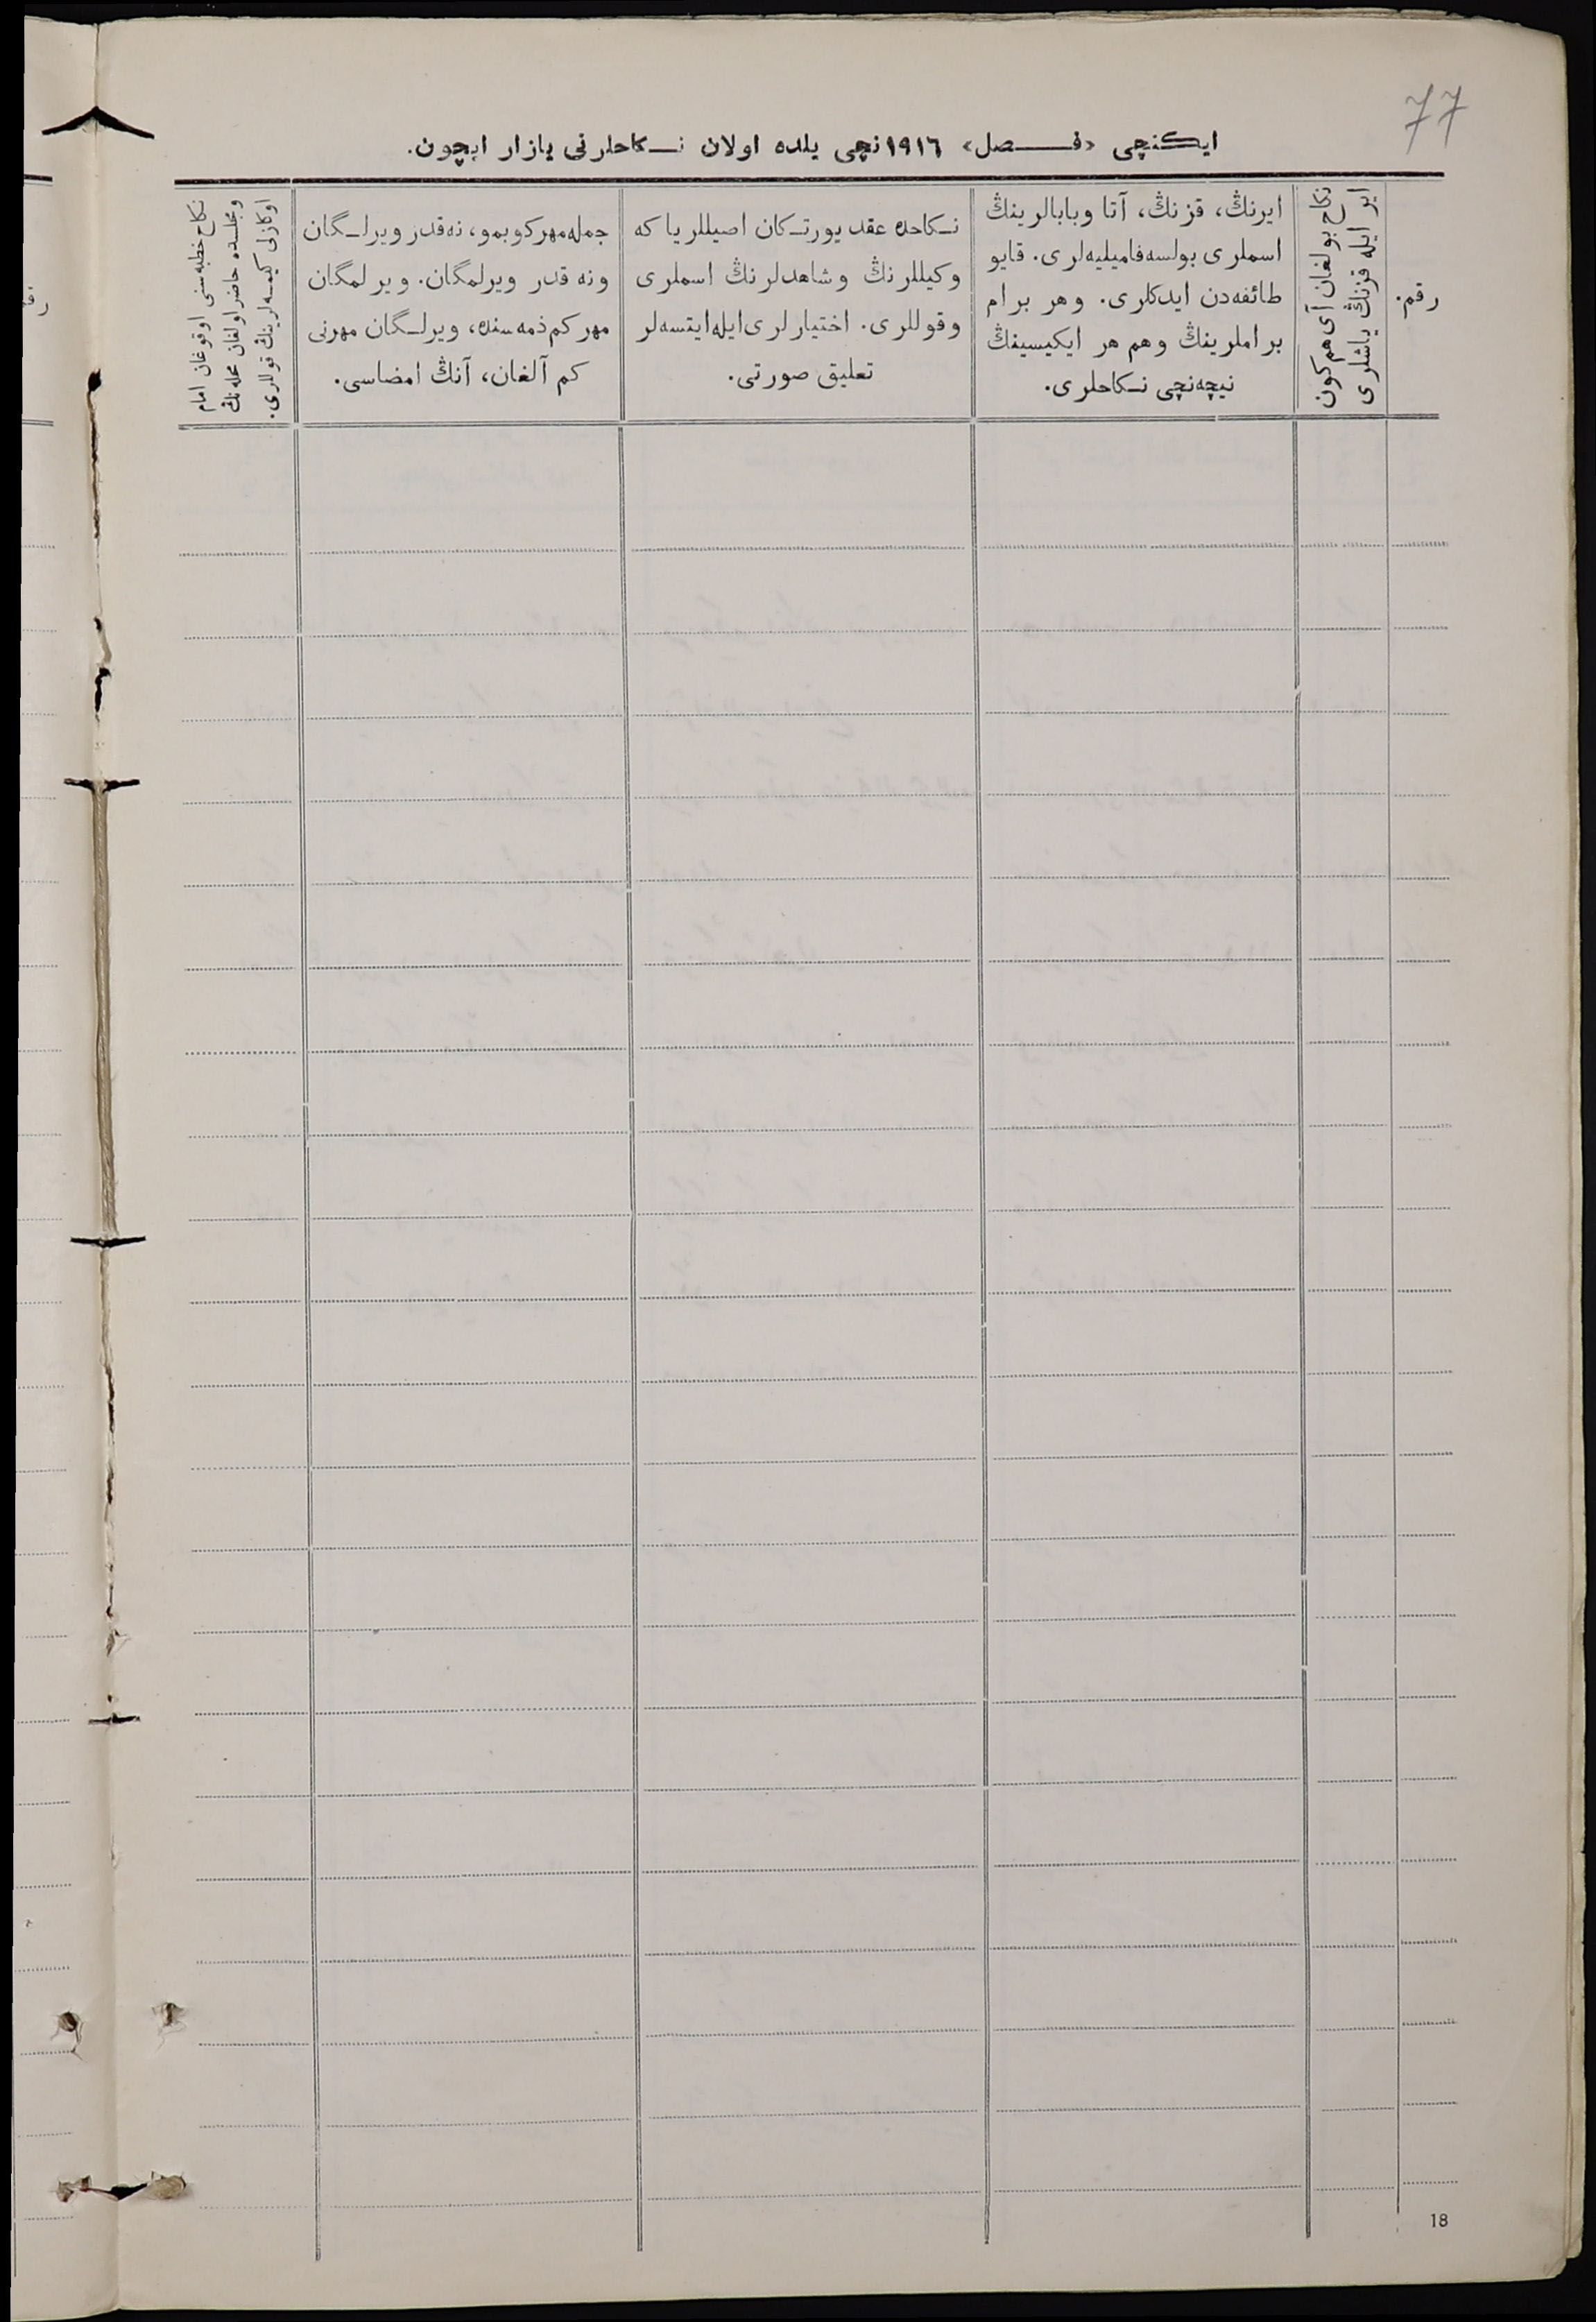 77
ایکنچی «فصل» ۱۹۱٦نچی یلده اولان نکاحلرنی یازار ایچون.
رقم.
نکاح بولغان آی هم کون
ایر ایله قزنڭ یاشلری
ایرنڭ، قزنڭ، آتا وبابالرینڭ
اسملری بولسه فامیلیه‌لری. قایو
طائفه‌دن ایدکلری. وهر برام
براملرینڭ وهم هر ایکیسینڭ
نیچه‌نچی نکاحلری.
نکاحده عقد یورتکان اصیللر یا که
وکیللرنڭ وشاهدلرنڭ اسملری
وقوللری. اختیارلری ایله ایتسه‌لر
تعلیق صورتی.
جمله مهر کوبمو، نه‌قدر ویرلگان
ونه قدر ویرلمگان. ویرلمگان
مهر کم ذمه‌سنده، ویرلگان مهرنی
کم آلغان، آنڭ امضاسی.
نکاح خطبه‌سنی اوقوغان امام
ومجلسده حاضر اولغان محله‌نڭ
اوکازلی کیمسه‌لرینڭ قوللری.
18